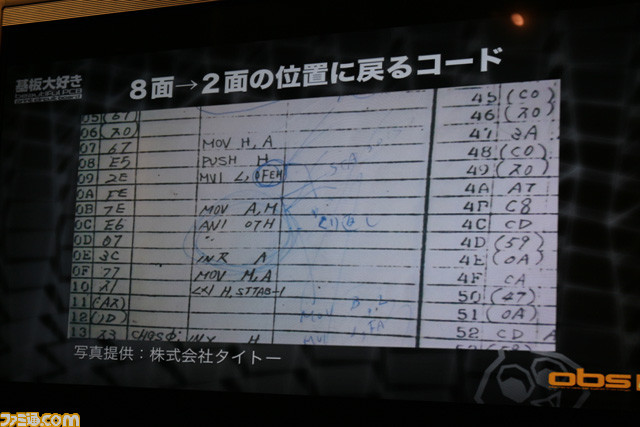 基板大好き
8面→2面の位置に戻るコード
05 (67)
06 (20)
07 67 MOV H, A
08 E5 PUSH H
09 2E MVI L, 0FEH
0A FE
0B 7E MOV A, M
0C E6 ANI 07H
0D 07
0E 3C INR A
0F 77 MOV M, A
10 21 LXI H, STTAB-1
11
12 (1D)
13 23 INX H
45 (C0)
46 (20)
47 3A
48 (C0)
49 (20)
4A A7
C8
4C CD
4D (59)
4E (0A)
4F CA
50 (47)
51 (0A)
52 CD
写真提供：株式会社タイトー
obs
ファミ通.com